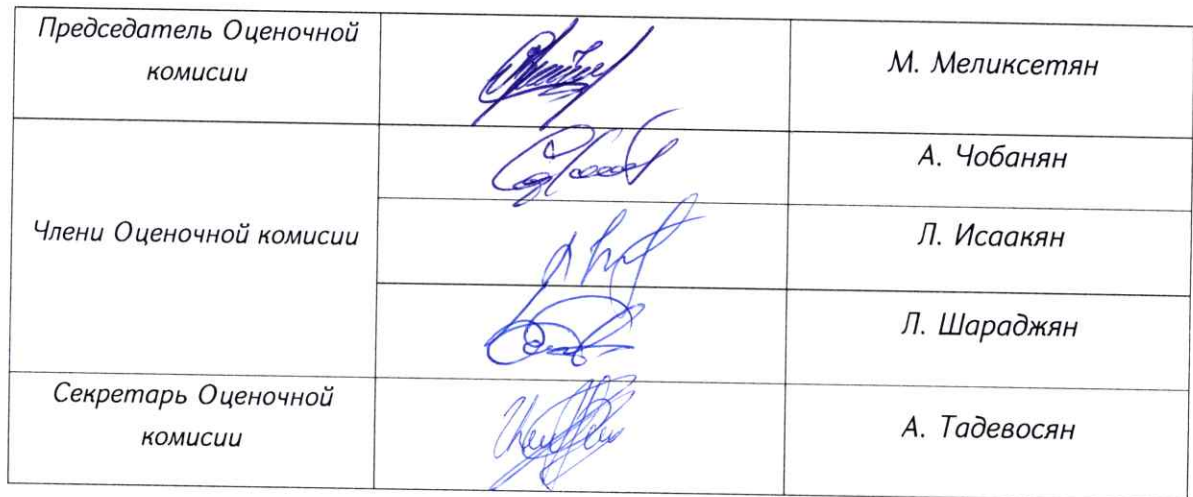 Председатель Оценочной
комисии
М. Меликсетян
А. Чобанян
Члени Оценочной комисии
Л. Исаакян
Л. Шараджян
Секретарь Оценочной
комисии
А. Тадевосян